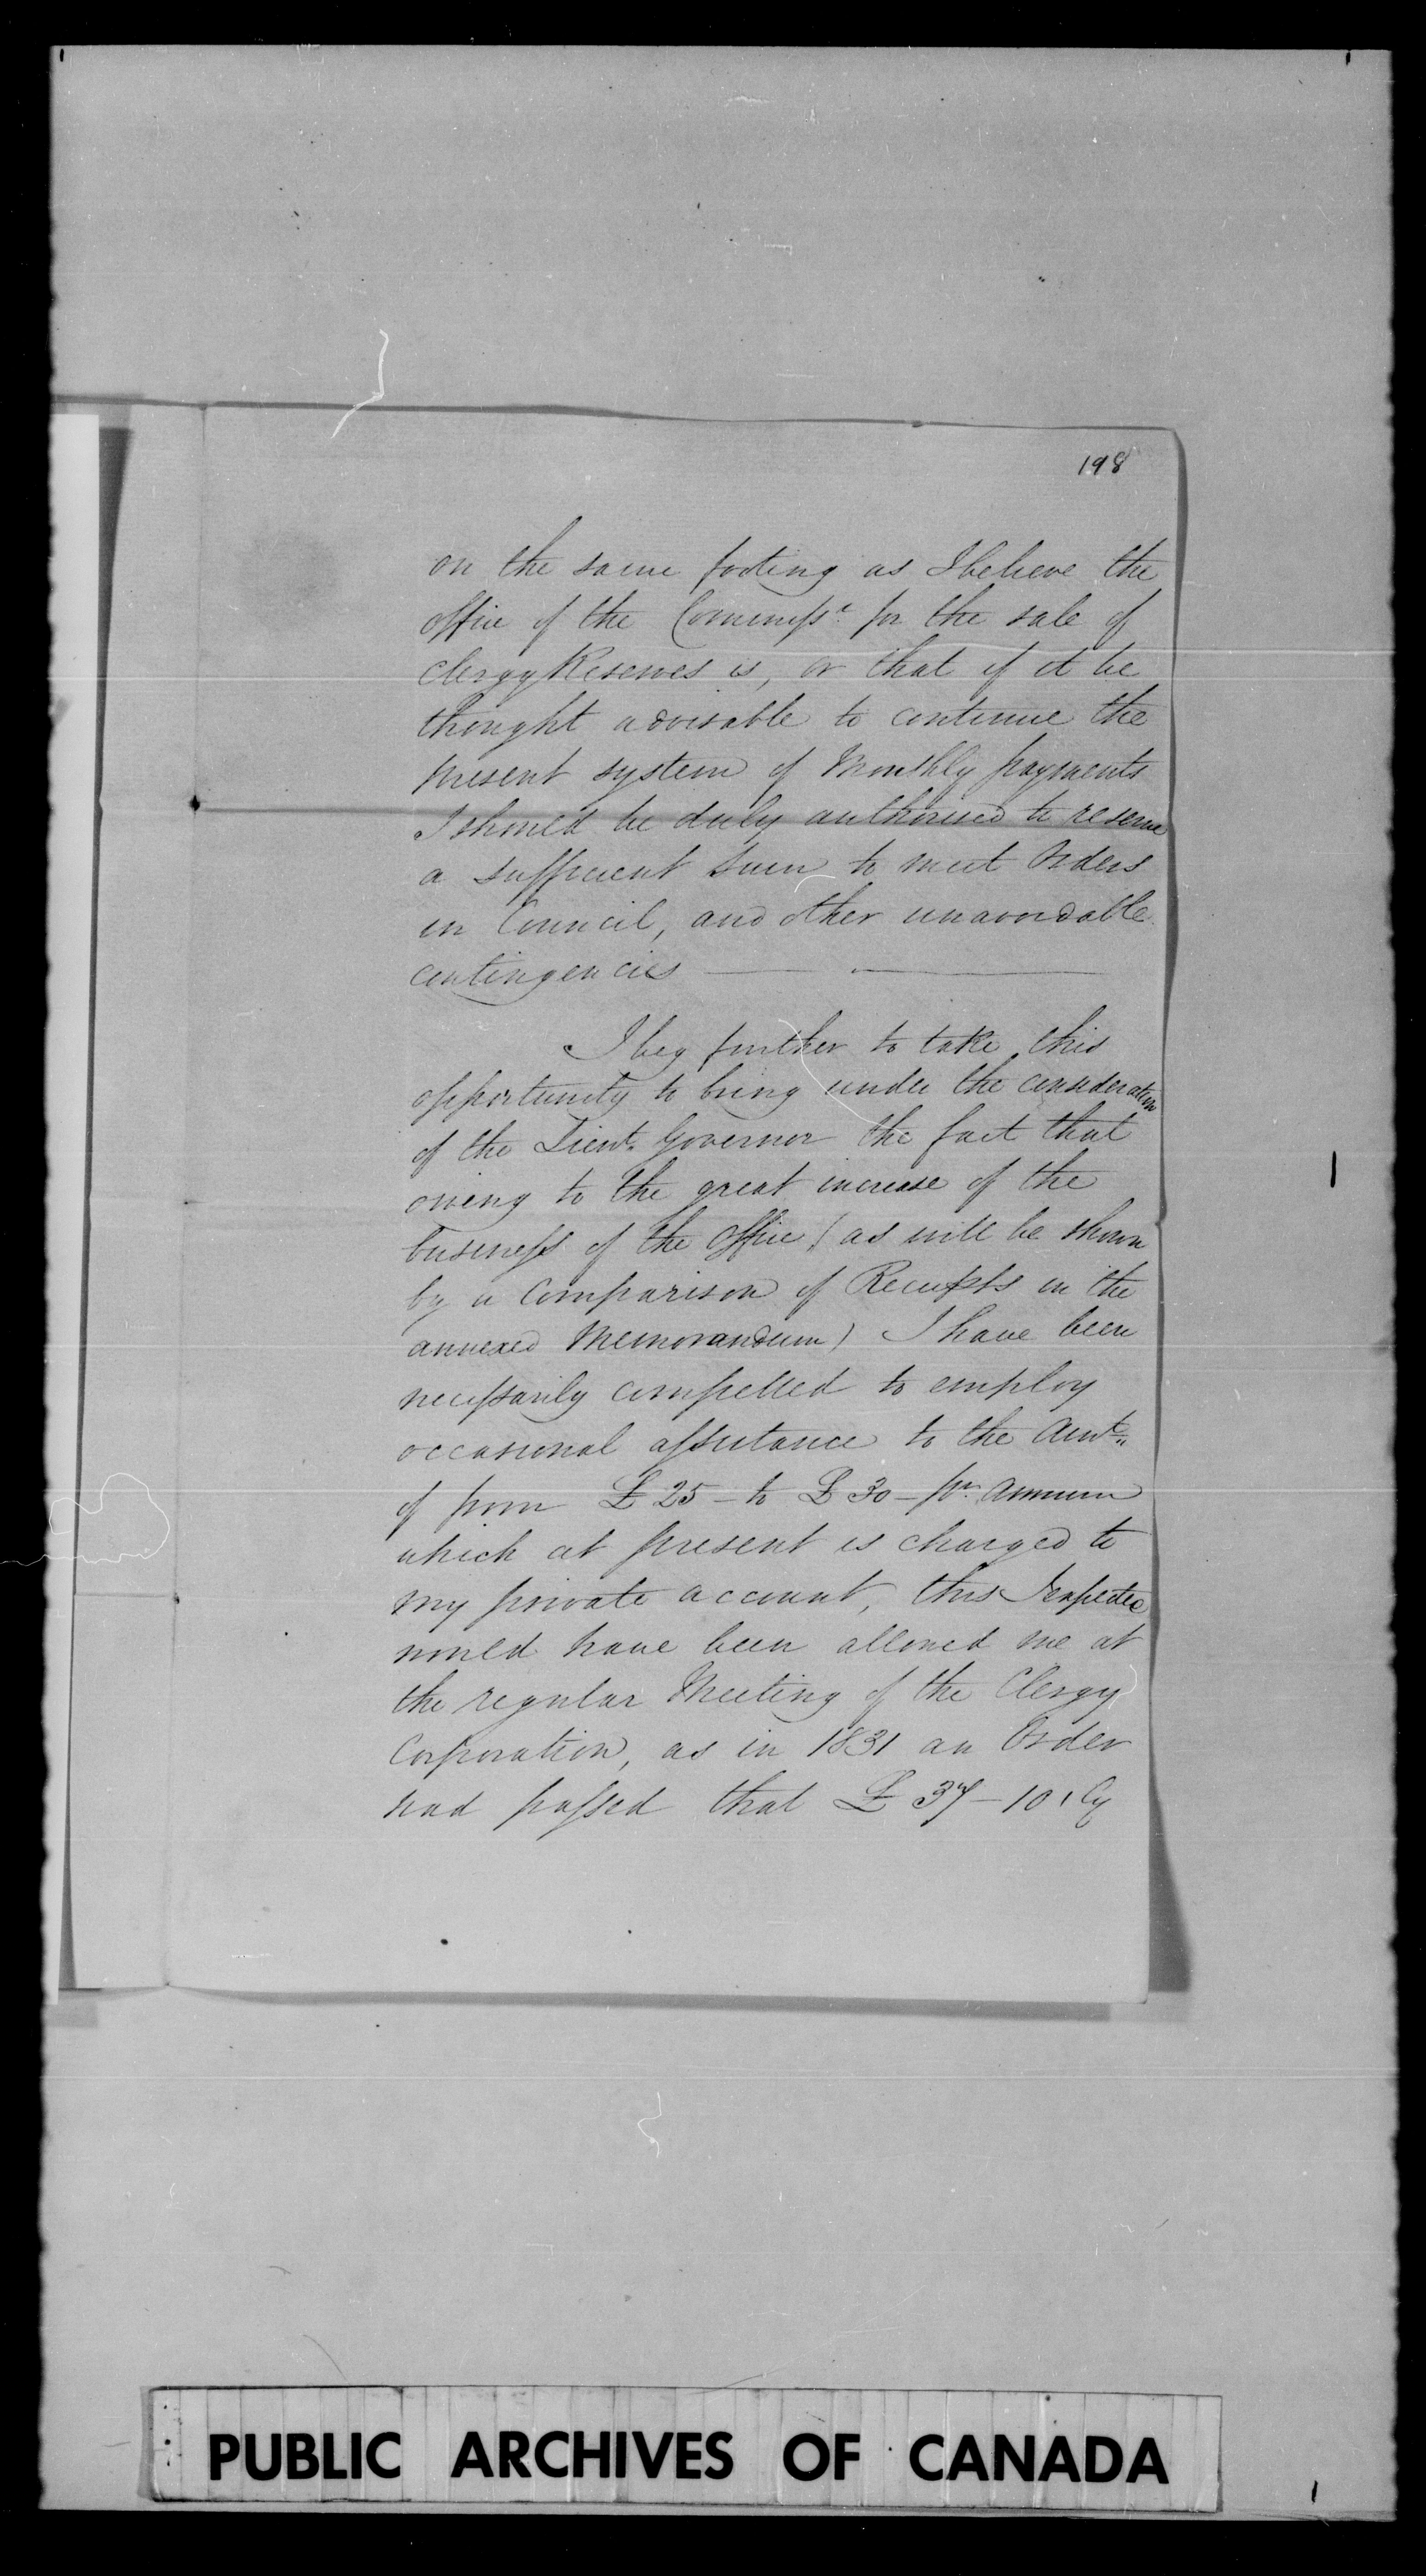 198
on the same footing as I believe the
office of the Commissr. for the sale of
Clergy Reserves is, or that if it be
thought advisable to continue the
present system of Monthly payments
I should be duly authorised to reserve
a sufficient sum to meet Orders
in Council, and other unavoidable
contingencies
I beg further to take this
opportunity to bring under the consideration
of the Lieut. Governor the fact that
owing to the great increase of the
business of the Office (as will be shown
by a Comparison of Receipts in the
annexed Memorandum) I have been
necessarily compelled to employ
occasional assistance to the Amt.
of from £ 25 - to £ 30 - pr. Annum
which at present is charged to
my private account, this I expected
would have been allowed me at
the regular Meeting of the Clergy
Corporation, as in 1831 an Order
had passed that £ 37 - 10, Cy
PUBLIC ARCHIVES OF CANADA